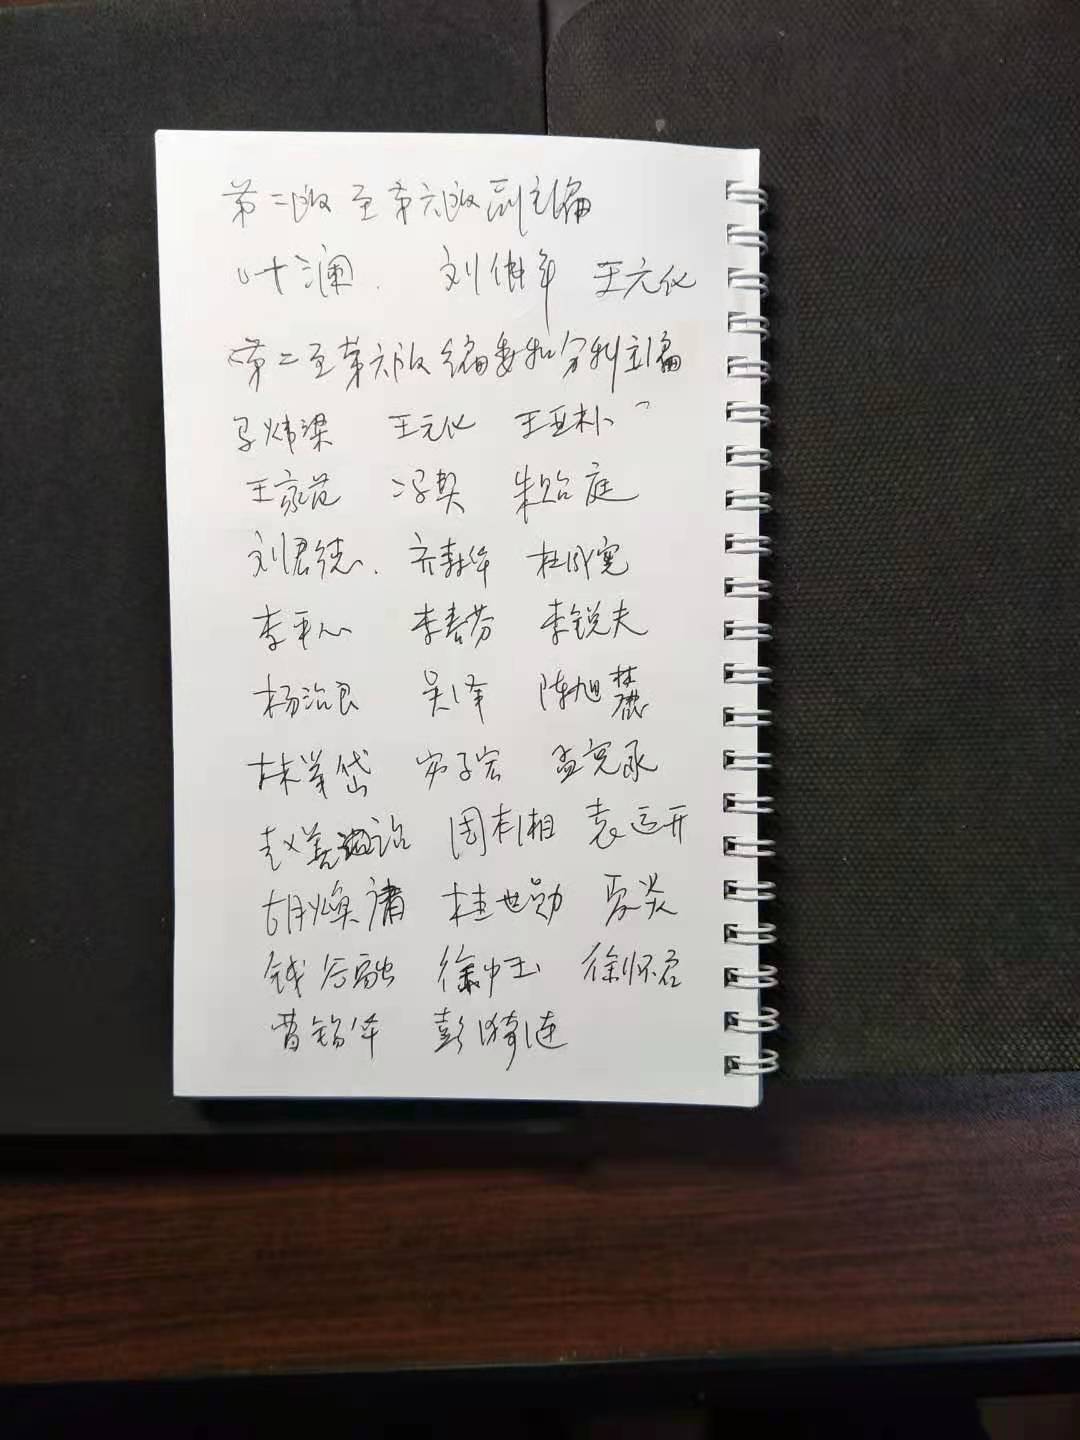 第二版至第六版副主编
叶澜 刘佛年 王元化
第二至第六版编委和分科主编
马炜梁 王元化 王亚朴
王家范 冯契 朱贻庭
刘君德 齐森华 杜成宪
李平心 李春芬 李锐夫
杨治良 吴泽 陈旭麓
林举岱 宓子宏 孟宪承
赵善诒 周本湘 袁运开
胡焕庸 桂世勋 夏炎
钱谷融 徐中玉 徐怀启
曹锡华 彭漪涟